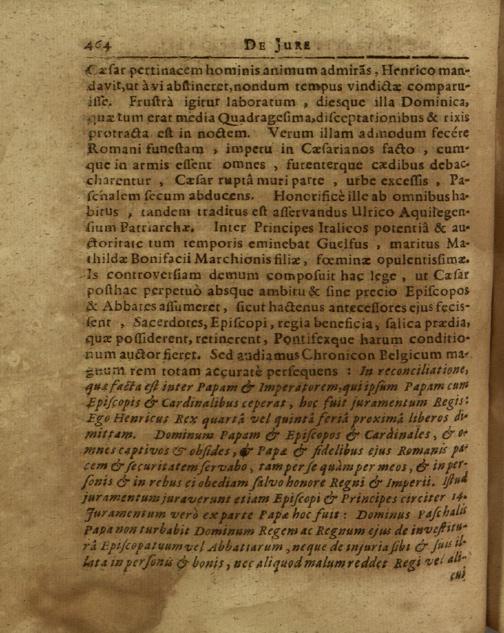 464 DE JURE
Cæsar pertinacem hominis animum admirãs, Henrico man-
davit, ut à vi abstineret, nondum tempus vindictæ comparu-
isse. Frustrà igitur laboratum, diesque illa Dominica,
quæ tum erat media Quadragesima, disceptationibus & rixis
protracta est in noctem. Verum illam admodum fecére
Romani funestam, impetu in Cæsarianos facto, cum-
que in armis essent omnes, furenterque cædibus debac-
charentur, Cæsar ruptâ muri parte, urbe excessis, Pa-
schalem secum abducens. Honorificè ille ab omnibus ha-
bitus, tandem traditus est asservandus Ulrico Aquilegen-
sium Patriarchæ. Inter Principes Italicos potentiâ & au-
ctoritate tum temporis eminebat Guelfus, maritus Ma-
thildæ Bonifacii Marchionis filiæ, fœminæ opulentissimæ.
Is controversiam demum composuit hac lege, ut Cæsar
posthac perpetuò absque ambitu & sine precio Episcopos
& Abbates assumeret, sicut hactenus antecessores ejus fecis-
sent, Sacerdotes, Episcopi, regia beneficia, salica prædia,
quæ possiderent, retinerent, Pontifexque harum conditio-
num auctor fieret. Sed audiamus Chronicon Belgicum ma-
gnum rem totam accuratè persequens: In reconciliatione,
quæ facta est inter Papam & Imperatorem, qui ipsum Papam cum
Episcopis & Cardinalibus ceperat, hoc fuit juramentum Regis:
Ego Henricus Rex quartâ vel quintâ feriâ proximâ liberos di-
mittam. Dominum Papam & Episcopos & Cardinales, & o-
mnes captivos & obsides, & Papæ & fidelibus ejus Romanis pa-
cem & securitatem servabo, tam per se quàm per meos, & in per-
sonis & in rebus ei obediam salvo honore Regni & Imperii. Istud
juramentum juraverunt etiam Episcopi & Principes circiter 14.
Juramentum verò ex parte Papæ hoc fuit: Dominus Paschalis
Papa non turbabit Dominum Regem ac Regnum ejus de investitu-
râ Episcopatuum vel Abbatiarum, neque de injuria sibi & suis il-
lata in personis & bonis, nec aliquod malum reddet Regi vel ali-
cui